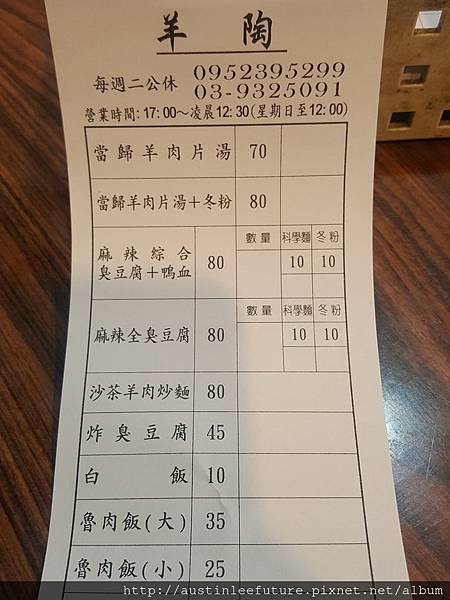 羊 陶
每週二公休 0952395299
03-9325091
營業時間: 17:00～凌晨12:30(星期日至12:00)
當歸羊肉片湯 70
當歸羊肉片湯＋冬粉 80
數量 科學麵 冬粉
麻辣綜合
臭豆腐＋鴨血 80 10 10
數量 科學麵 冬粉
麻辣全臭豆腐 80 10 10
沙茶羊肉炒麵 80
炸臭豆腐 45
白飯 10
魯肉飯(大) 35
魯肉飯(小) 25
http://austinleefuture.pixnet.net/album